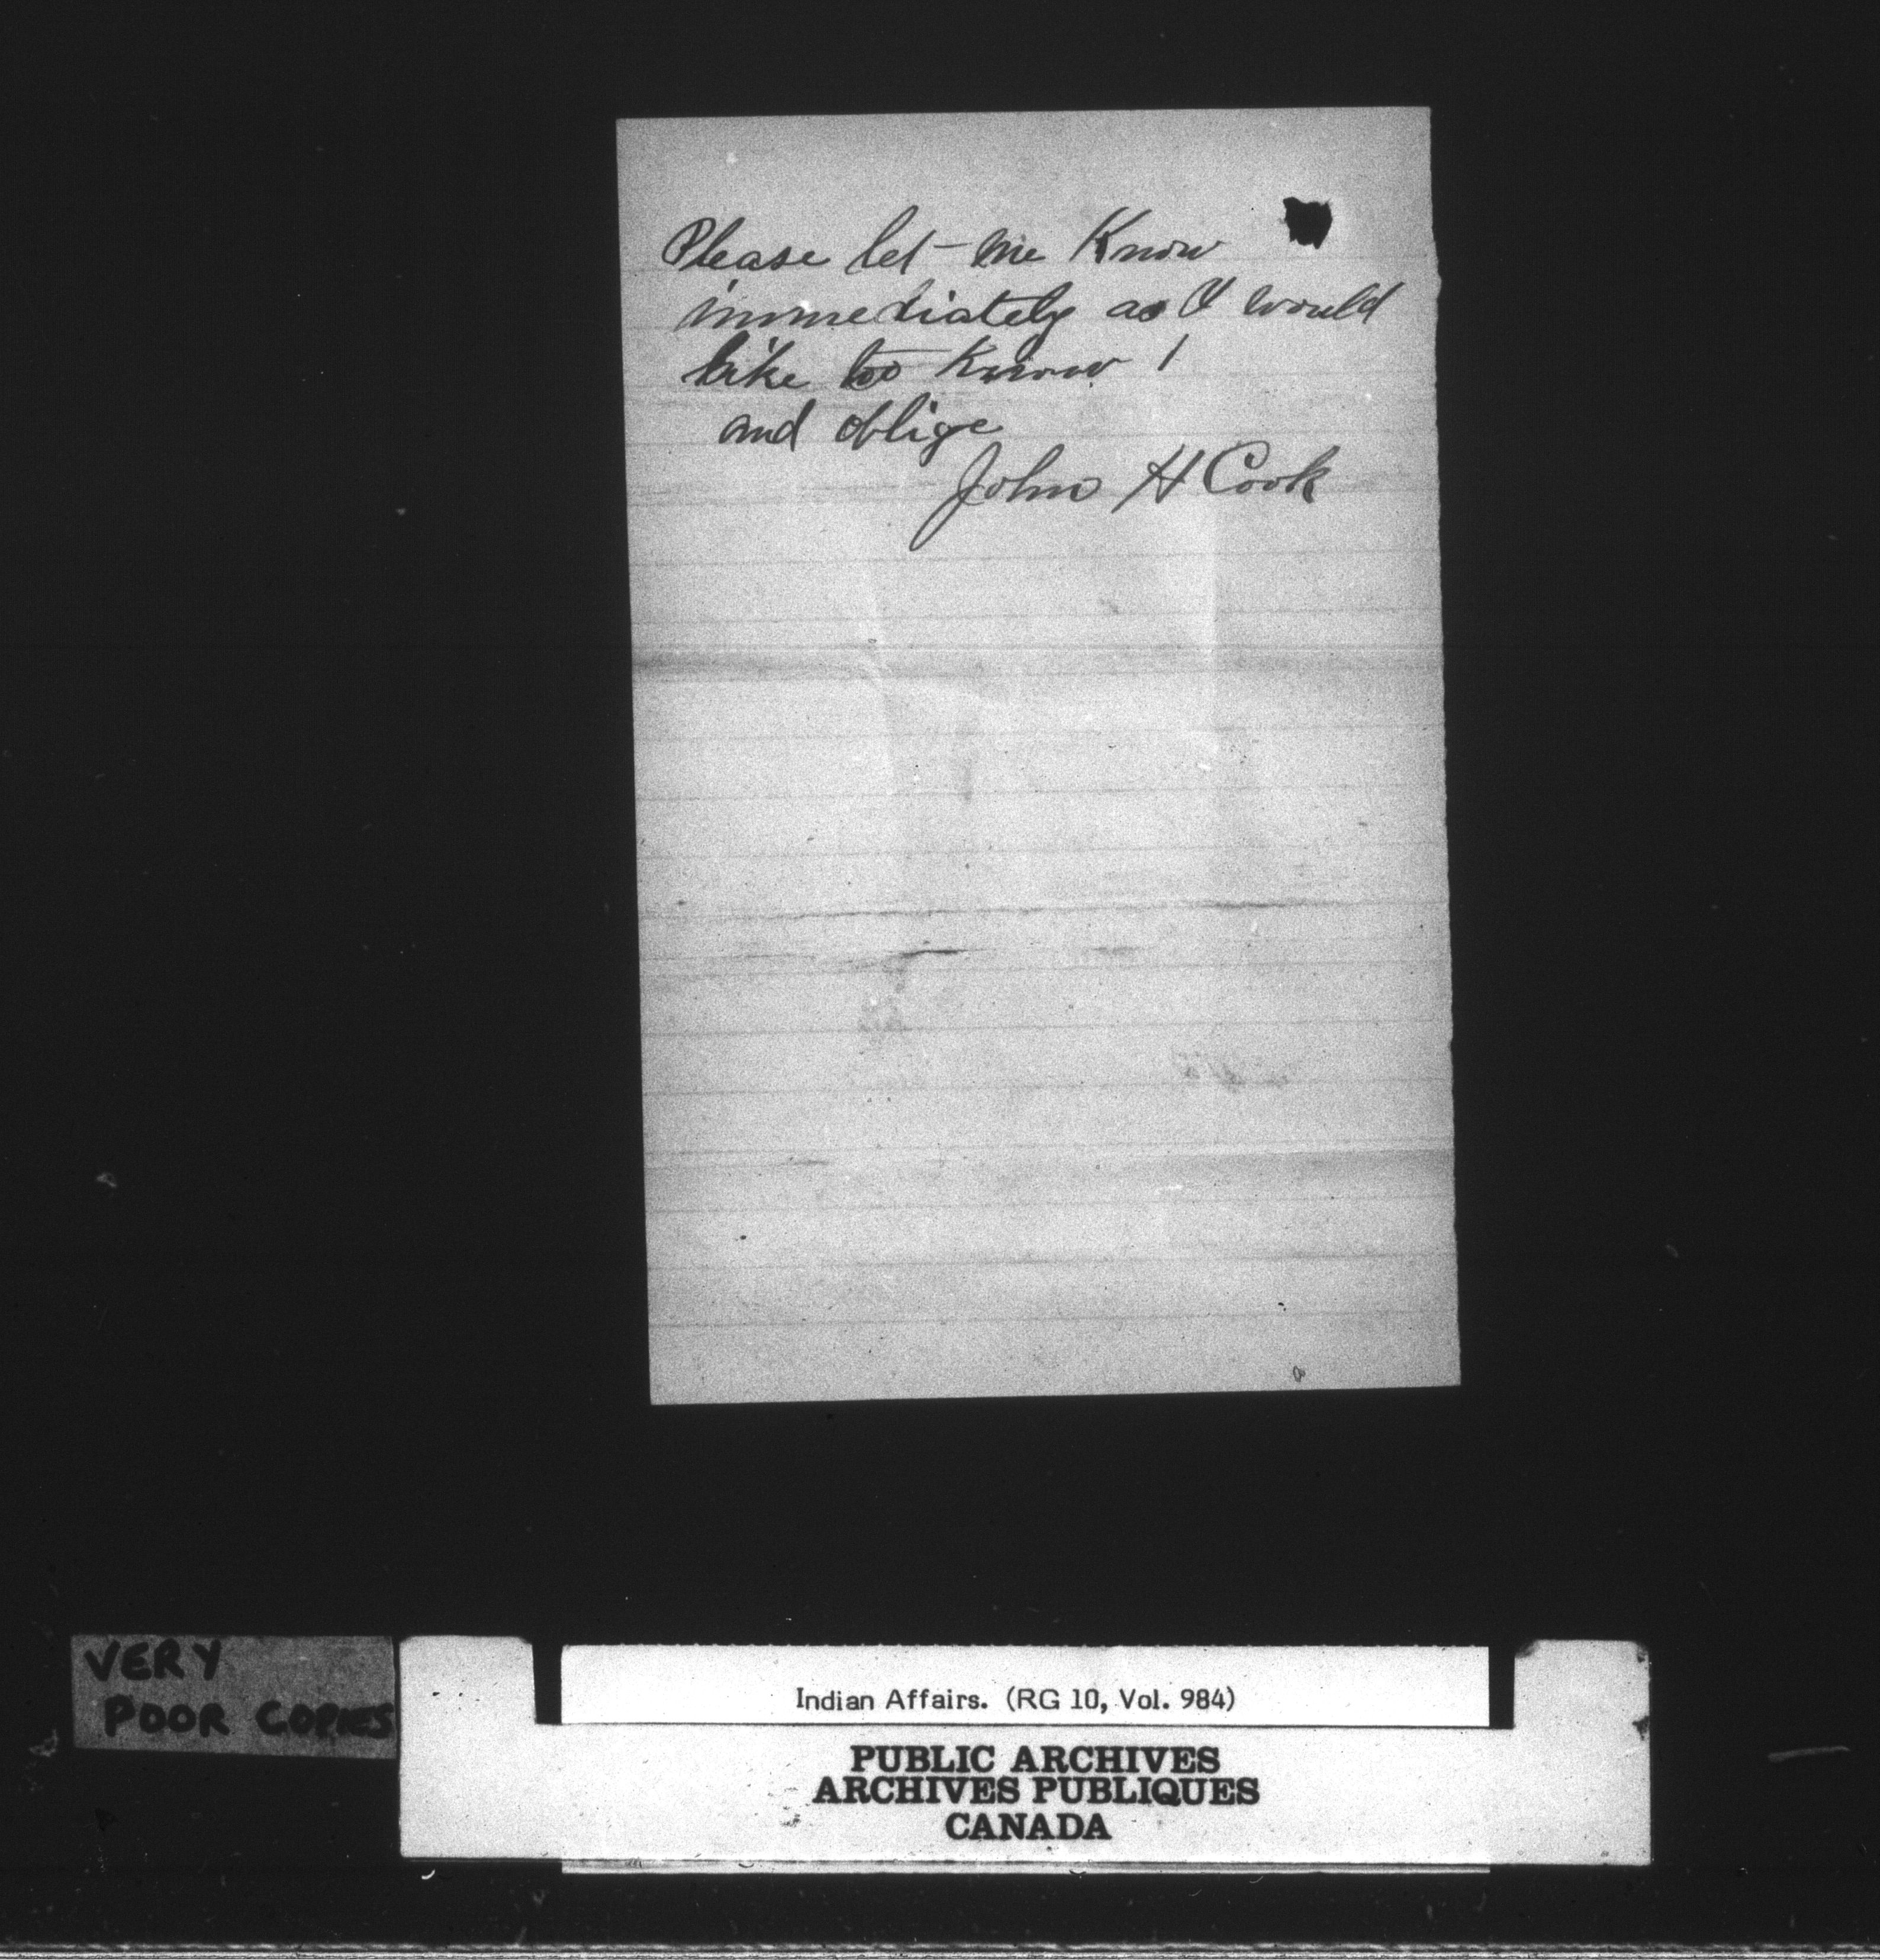 Please let me Know
immediately as I would
like too Know !
and oblige
John H Cook
VERY
POOR COPIES
Indian Affairs. (RG 10, Vol. 984)
PUBLIC ARCHIVES
ARCHIVES PUBLIQUES
CANADA